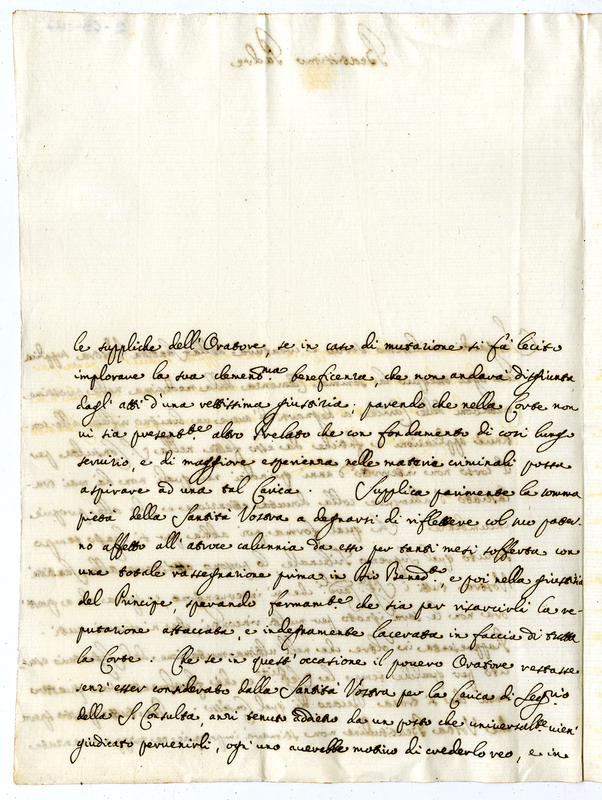 le suppliche dell'Oratore, se in caso di mutazione si fà lecito
implorare la sua clement.ma beneficenza, che non andarà disgiunta
dagli atti d'una rettissima giustizia: parendo che nella Corte non
vi sia presentte. altro Prelato che con fondamento di così lungo
servizio, e di maggiore esperienza nelle materie criminali possa
aspirare ad una tal Carica. Supplica parimente la somma
pietà della Santità Vostra a degnarsi di riflettere col suo pater-
no affetto all'atroce calunnia da esso per tanti mesi sofferta con
una totale rassegnazione prima in Dio Bened.to, e poi nella giustizia
del Principe, sperando fermam.te che sia per risarcirli la re-
putazione attaccata, e indegnamente lacerata in faccia di tutta
la Corte: Che se in quest'occasione il povero Oratore restasse
senz'esser considerato dalla Santità Vostra per la Carica di Seg.rio
della S. Consulta, anzi tenuto addietro da un posto che universalm.te vien'
giudicato pervenirli, ogn'uno averebbe motivo di crederlo reo, e in